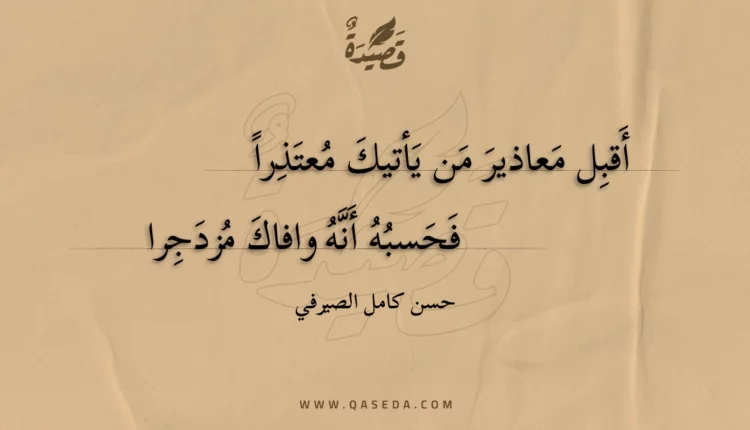 قَصِيدَةٌ
أَقبِل مَعاذيرَ مَن يَأتيكَ مُعتَذِراً
فَحَسبُهُ أَنَّهُ وافاكَ مُزدَجِرا
حسن كامل الصيرفي
WWW.QASEDA.COM